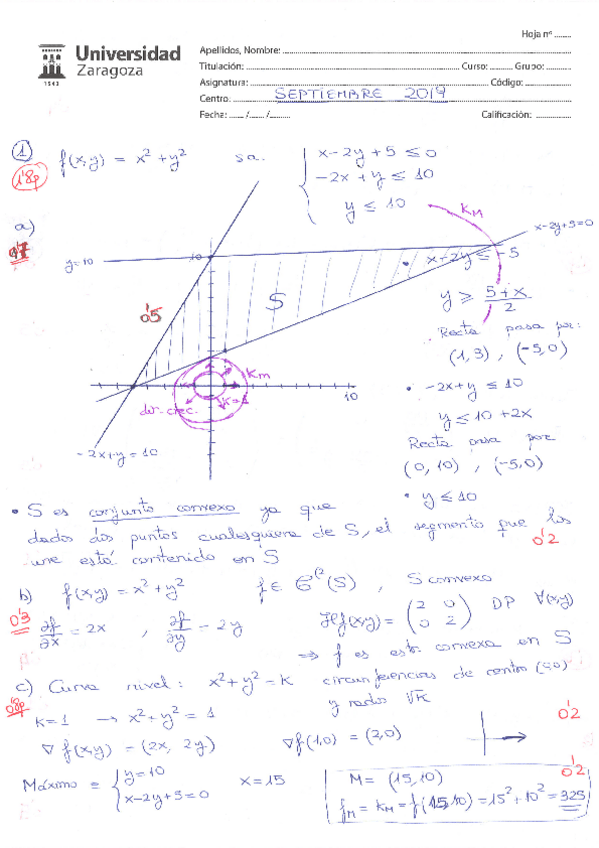 Hoja nº ........
Universidad
Zaragoza
1542
Apellidos, Nombre:
Titulación: Curso: Grupo:
Asignatura: Código:
Centro: SEPTIEMBRE 2017
Fecha: ...... / ...... / ......
Calificación:
1 f(x,y) = x² + y² s.a. { x-2y+5 ≤ 0
1'8p
-2x+y ≤ 10
y ≤ 10
a)
0'7
y=10
10
KM
x-2y+5=0
• x-2y ≤ -5
S
0'5
y ≥ (5+x)/2
Recta pasa por:
(1,3), (-5,0)
Km
K=1
dir. crec.
10
• -2x+y ≤ 10
y ≤ 10+2x
-2x+y=10
Recta pasa por
(0,10), (-5,0)
• y ≤ 10
• S es conjunto convexo ya que
dado dos puntos cualesquiera de S, el segmento que los
une está contenido en S
0'2
b) f(x,y) = x² + y² f ∈ C²(S), S convexo
0'3
∂f/∂x = 2x, ∂f/∂y = 2y Hf(x,y) = (2 0 / 0 2) DP ∀(x,y)
⇒ f es estr. convexa en S
c) Curva nivel: x²+y² = K circunferencias de centro (0,0)
0'8p
y radio √K
K=1 → x²+y² = 1
0'2
∇f(x,y) = (2x, 2y) ∇f(1,0) = (2,0)
0'2
Máximo = { y=10 x=15
x-2y+5=0
M = (15,10)
fM = KM = f(15,10) = 15² + 10² = 325